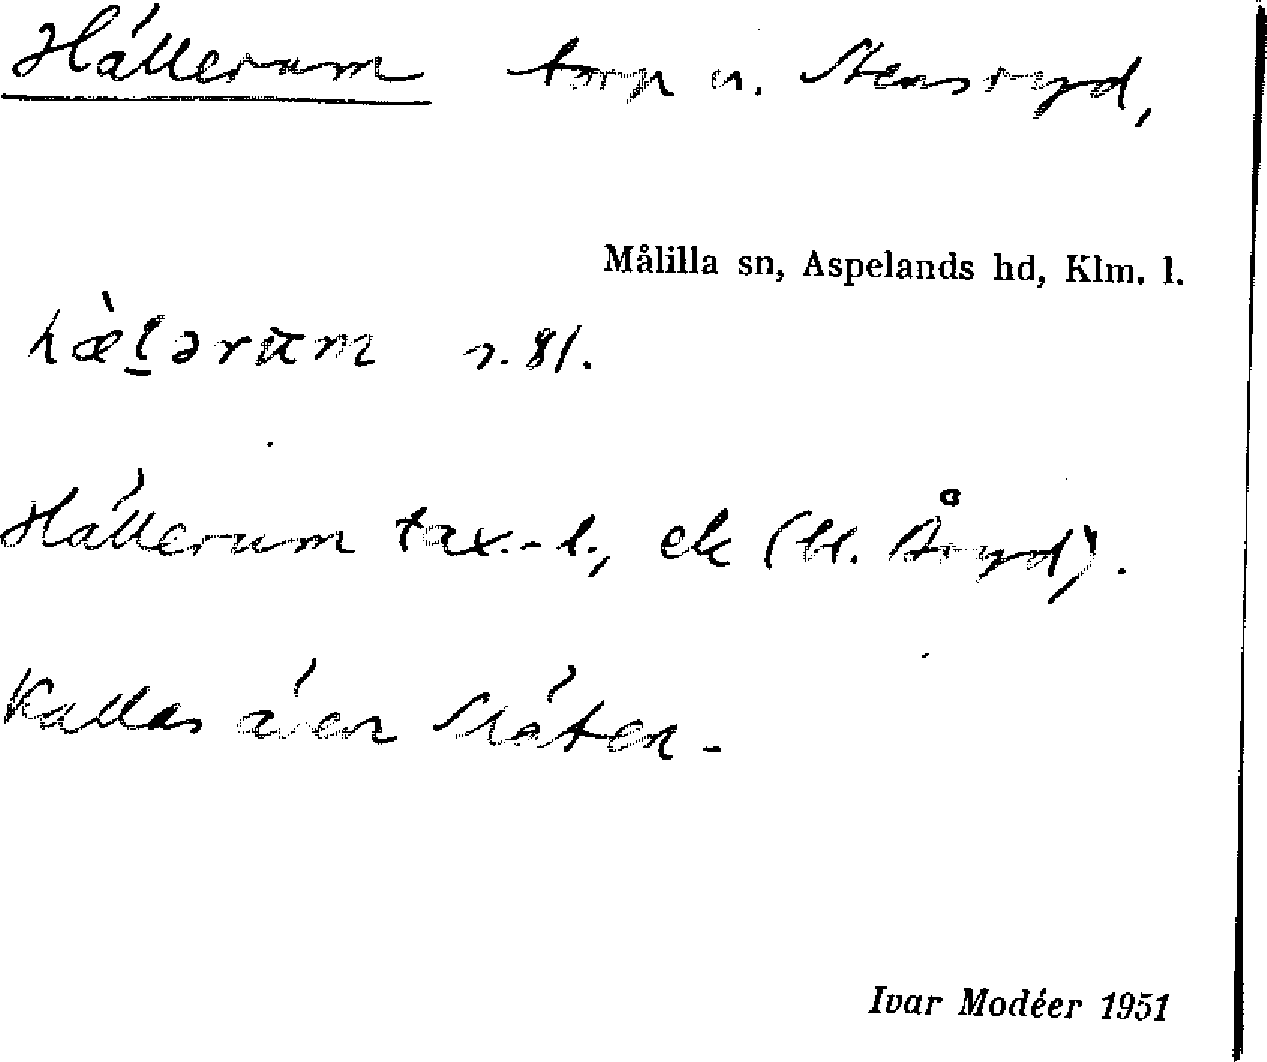 Hällerum torp u. Stensryd,
Målilla sn, Aspelands hd, Klm. l.
hæ̀l̠ərum s. 81.
Hällerum tax.-l., ek (bl. Åryd).
Kallas även Släten.
Ivar Modéer 1951